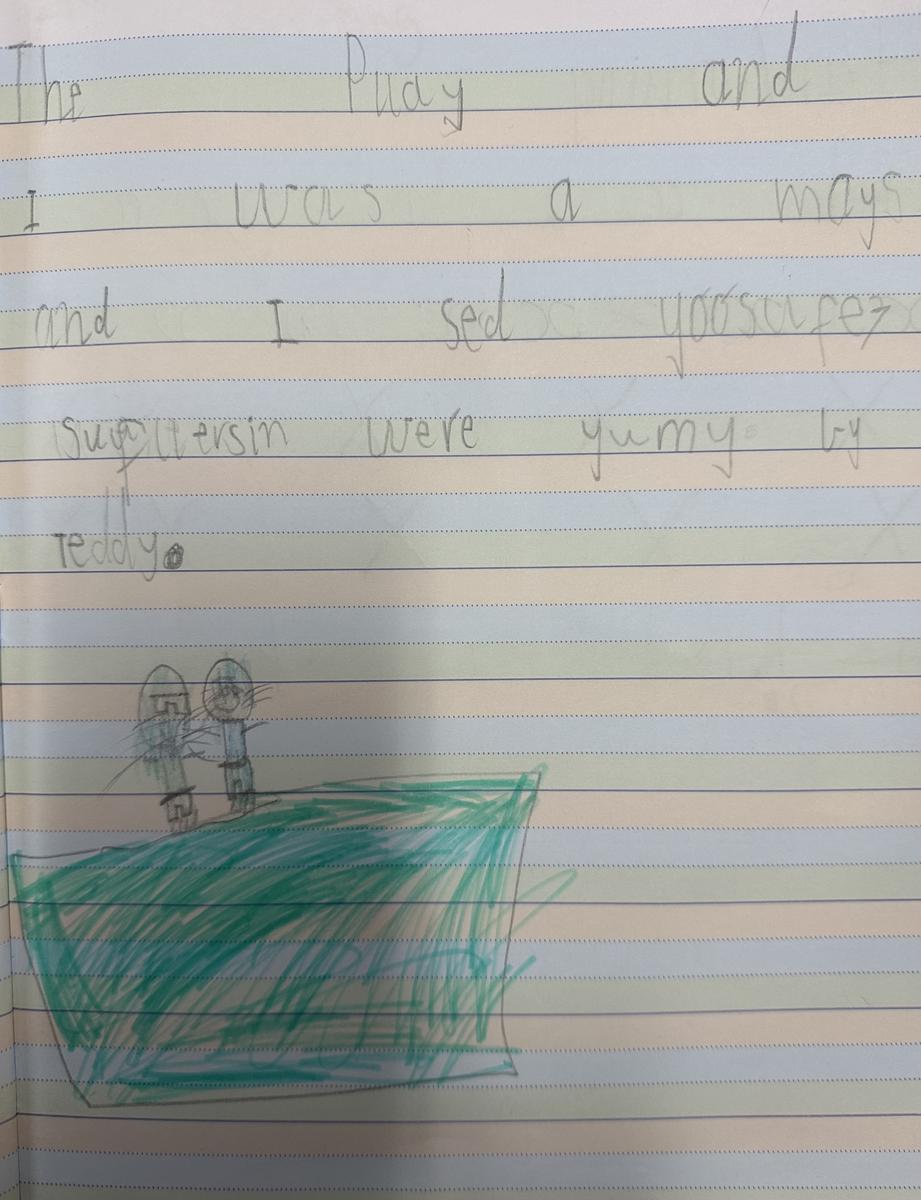 The Puay and
I was a mays
and I sed yoosufez
were yumy by
Teddy.